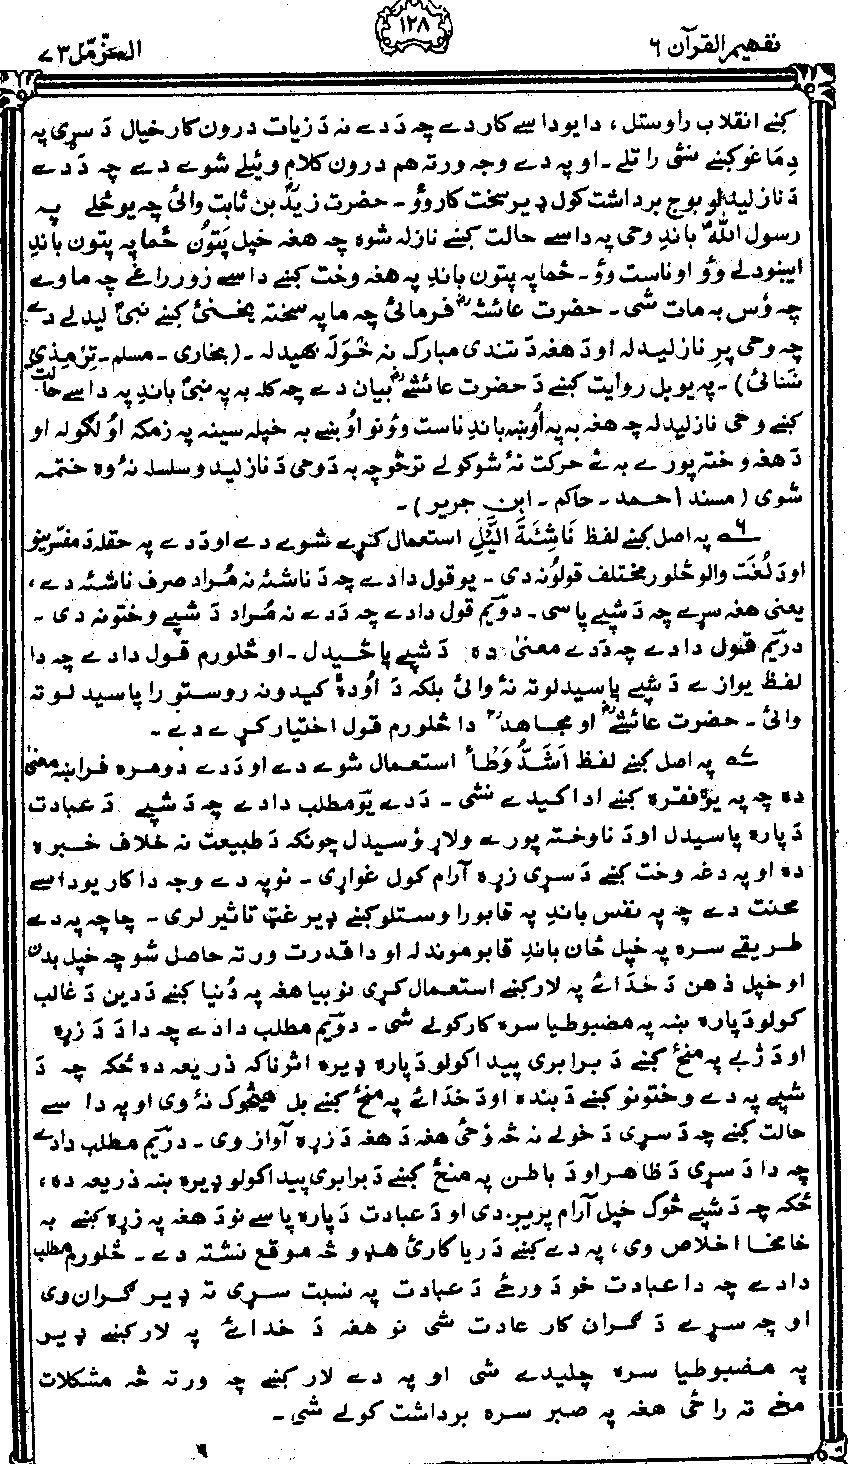 تفهیم القرآن ۶
۱۲۸
المزّمّل ۷۳
کښے انقلاب راوستل، دا یو داسے کار دے چه دَ دے نه دَ زیات درون کار خیال دَ سړی په
دماغو کښے نشی راتلے۔ او په دے وجه ورته هم درون کلام وئیلے شوے دے چه دَ دے
دَ نازلیدلو بوج برداشت کول ډیر سخت کار وؤ۔ حضرت زیدؓ بن ثابت وائی چه یو ځلے په
رسول اللهؐ باندِ وحی په داسے حالت کښے نازله شوه چه هغه خپل پَتُون ځما په پتون باندِ
ایښودلے وؤ او ناست وؤ۔ ځما په پتون باندِ په هغه وخت کښے داسے زور راغے چه ما وے
چه وُس به مات شی۔ حضرت عائشهؓ فرمائی چه ما په سخته یخنئ کښے نبیؐ لیدلے دے
چه وحی پرِ نازلیدله او دَ هغه دَ تندی مبارک نه خوَله بهیدله۔ (بخاری۔ مسلم۔ ترمذی
نسائی)۔ په یو بل روایت کښے دَ حضرت عائشےؓ بیان دے چه کله به په نبیؐ باندِ په داسے حالت
کښے وحی نازلیدله چه هغه به په اُوښه باندِ ناست وؤ نو اوښے به خپله سینه په زمکه اولګوله او
دَ هغه وخته پورے به ئے حرکت نهٔ شو کولے ترڅو چه به دَ وحی دَ نازلیدو سلسله نهٔ وه ختمه
شوی (مسند احمد۔ حاکم۔ ابن جریر)۔
۶ په اصل کښے لفظ نَاشِئَةَ الَّيۡلِ استعمال کړے شوے دے او دَ دے په حقله دَ مفسّرینو
او دَ لُغت والو څلور مختلف قولونه دی۔ یو قول دا دے چه دَ ناشئه نه مُراد صرف ناشئه دے،
یعنی هغه سړے چه دَ شپے پاسی۔ دویَم قول دا دے چه دَ دے نه مُراد دَ شپے وختونه دی۔
دریَم قول دا دے چه دَ دے معنیٰ ده دَ شپے پاڅیدل۔ او څلورم قول دا دے چه دا
لفظ یوازے دَ شپے پاسیدلو ته نهٔ وائی بلکه دَ اوُدهٔ کیدو نه روستو را پاسیدلو ته
وائی۔ حضرت عائشےؓ او مجاهدؒ دا څلورم قول اختیار کړے دے۔
۷ په اصل کښے لفظ اَشَدُّ وَطْأ استعمال شوے دے او دَ دے دومره فراخه معنیٰ
ده چه په یوه فقره کښے ادا کیدے نشی۔ دَ دے یَو مطلب دا دے چه دَ شپے دَ عبادت
دَپاره پاسیدل او دَ ناوخته پورے ولاړ وُسیدل چونکه دَ طبیعت نه خلاف خبره
ده او په دغه وخت کښے دَ سړی زړه آرام کول غواړی۔ نو په دے وجه دا کار یو داسے
محنت دے چه په نفس باندِ په قابو راوستلو کښے ډیر غټ تاثیر لری۔ چا چه په دے
طریقے سره په خپل ځان باندِ قابو موندله او دا قدرت ورته حاصل شو چه خپل بدن
او خپل ذهن دَ خدائے په لار کښے استعمال کړی نو بیا هغه په دُنیا کښے دَ دین دَ غالب
کولو دَپاره ښه په مضبوطیا سره کار کولے شی۔ دویَم مطلب دا دے چه دا دَ دَ زړه
او دَ ژبے په منځ کښے دَ برابری پیدا کولو دَپاره ډیره اثرناکه ذریعه ده ځکه چه دَ
شپے په دے وختونو کښے دَ بنده او دَ خدائے په منځ کښے بل هیڅوک نهٔ وی او په داسے
حالت کښے چه دَ سړی دَ خولے نه څه وُځی هغه دَ هغه دَ زړه آواز وی۔ دریَم مطلب دا دے
چه دا دَ سړی دَ ظاهر او دَ باطن په منځ کښے دَ برابری پیدا کولو ډیره ښه ذریعه ده،
ځکه چه دَ شپے څوک خپل آرام پریږدی او دَ عبادت دَپاره پاسے نو دَ هغه په زړه کښے به
خامخا اخلاص وی، په دے کښے دَ ریاکارئ هډو څه موقع نشته دے۔ څلورم مطلب
دا دے چه دا عبادت خو دَ ورځے دَ عبادت په نسبت سړی ته ډیر ګران وی
او چه سړے دَ ګران کار عادت شی نو هغه دَ خدائے په لار کښے ډیر
په مضبوطیا سره چلیدے شی او په دے لار کښے چه ورته څه مشکلات
مخے ته راځی هغه په صبر سره برداشت کولے شی۔